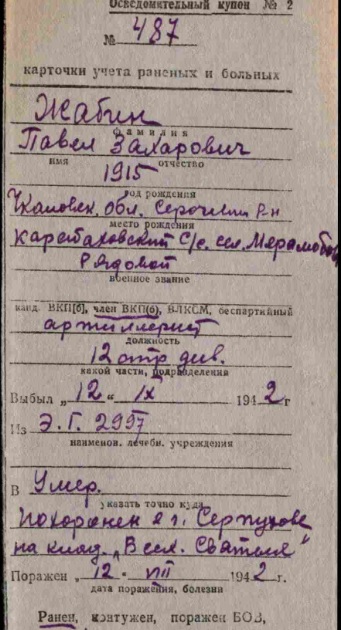 Осведомительный купон № 2
№ 487
карточки учета раненых и больных
Жабин
фамилия
Павел Захарович
имя отчество
1915
год рождения
Чкаловск. обл. р-н
место рождения
с/с. сел.
Рядовой
военное звание
канд. ВКП(б), член ВКП(б), ВЛКСМ, беспартийный
артиллерист
должность
12 отр див.
какой части, подразделения
Выбыл „ 12 “ IX 1942 г
Из Э.Г. 2997
наименов. лечебн. учреждения
В Умер.
указать точно куда
Похоронен в г. Серпухове
на клад. „Всех Святых“
Поражен „ 12 “ VIII 1942 г.
дата поражения, болезни
Ранен, контужен, поражен БОВ,